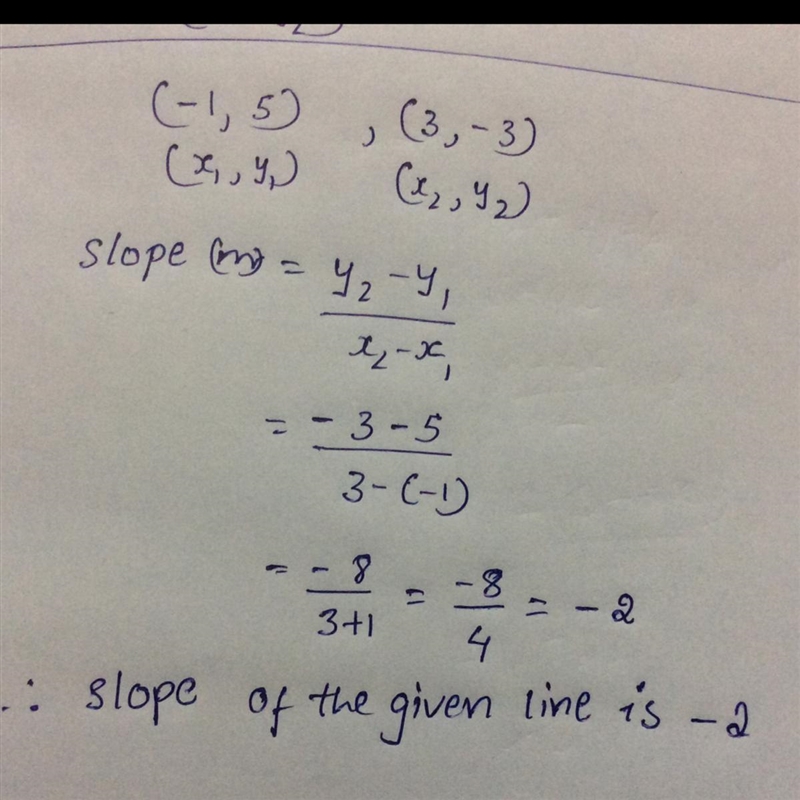 (-1, 5) , (3, -3)
(x₁, y₁) (x₂, y₂)
slope (m) = y₂ - y₁
x₂ - x₁
= - 3 - 5
3 - (-1)
= - 8 / 3+1 = -8 / 4 = - 2
∴ slope of the given line is - 2